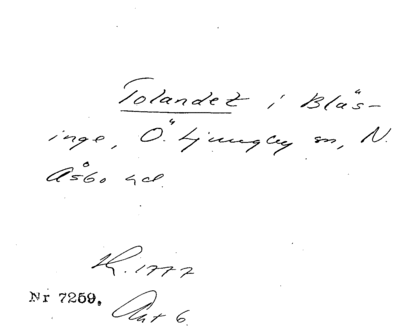 Tolandet i Blås-
inge, Ö. Ljungby sn, N.
Åsbo hd.
Kh. 1777
Nr 7259, Akt 6